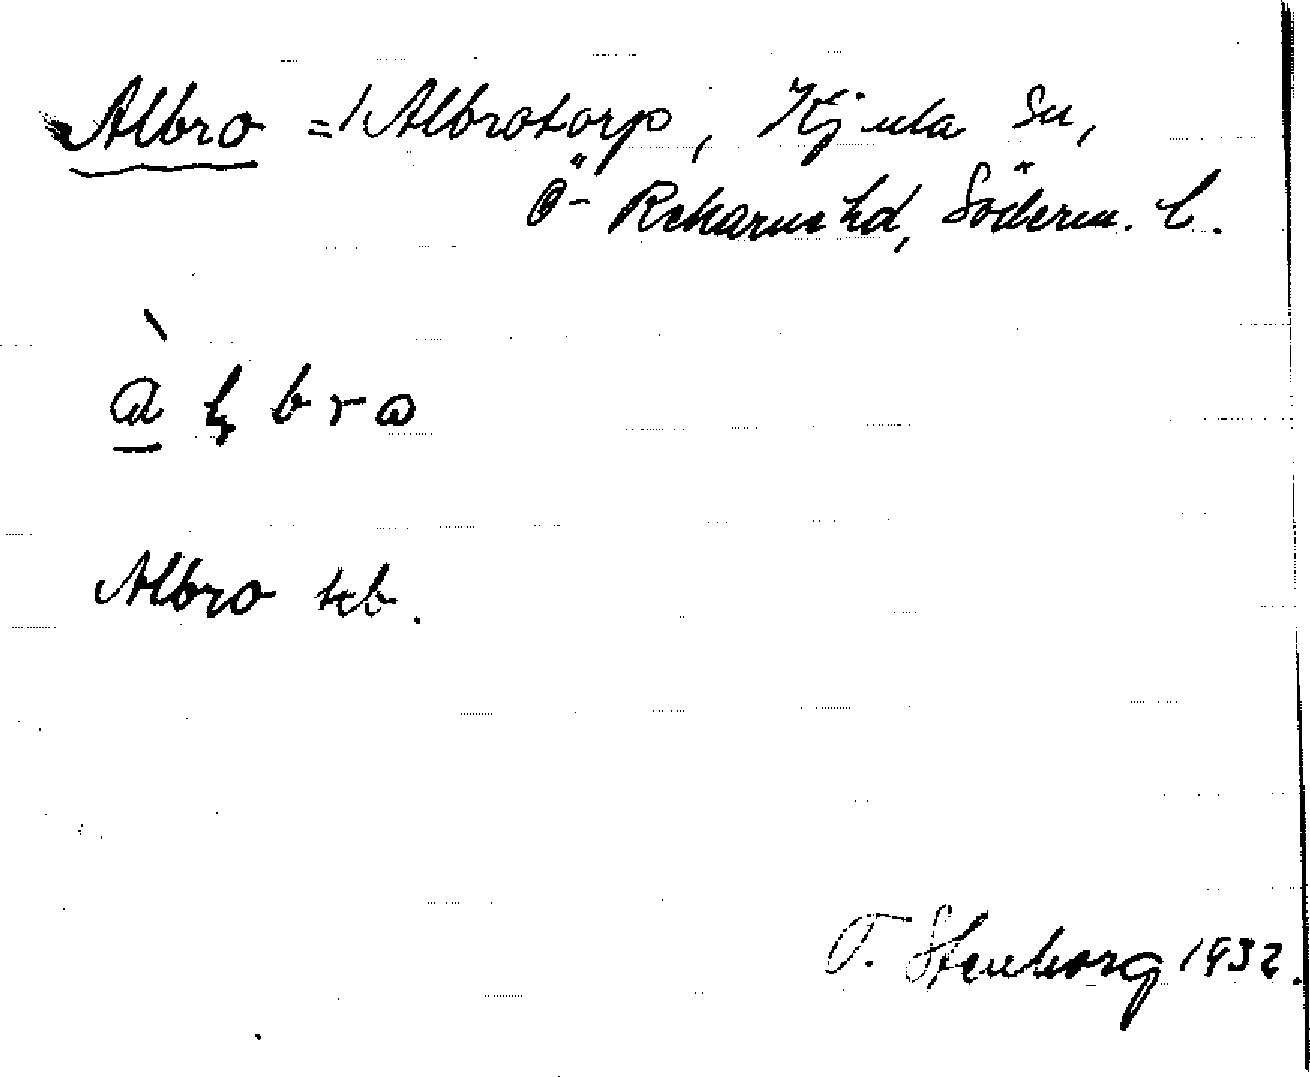 Albro = / Albrotorp, Kjula Sn,
Ö- Rekarne hd, Söderm. l.
àl̥bro
Albro tkb.
T. Stenborg 1932.